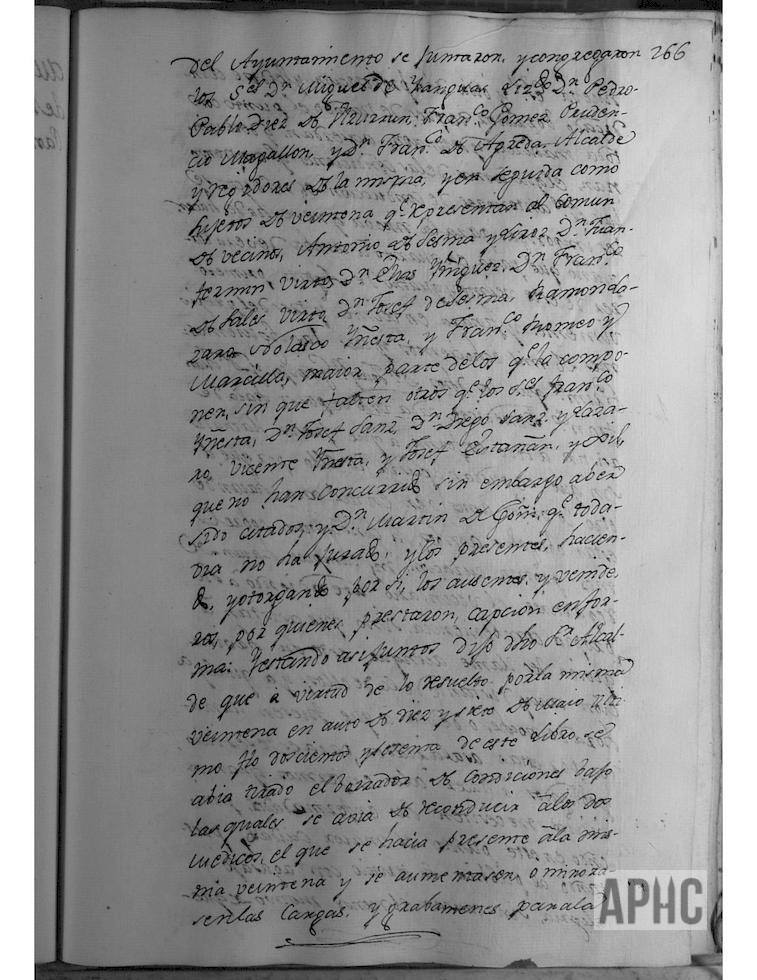 del Ayuntamiento se juntaron, y congregaron 266
los S.res D.n Miguel de Yanguas Liz.do D.n Pedro
Pablo Diez de Ulzurrun, Fran.co Gomez, Pruden-
cio Magallon, y D.n Fran.co de Agreda, Alcalde
y regidores de la misma, y en seguida como
sujetos de veintena q.e representan al comun
de vecinos, Antonio de Sesma y D.n Juan
fermin virto, D.n Elias Yñiguez, D.n Fran.co
de Sales virto, D.n Josef de Sesma, Ramon do-
Nolasco Yñesta, y Fran.co Romeo y
Marcilla, maior parte delos q.e la compo-
nen, sin que falten otros q.e los S.res fran.co
Yñesta, D.n Josef Sanz, D.n Diego Sanz y laza-
ro, Vicente Yñesta, y Josef Estañan, y
que no han concurrido sin embargo aber
sido citados, y D.n Martin de Goñi, q.e toda-
via no ha jurado, y los presentes, hacien-
do, y otorgando por si, los ausentes, y venide
ros, por quienes prestaron, capcion en for-
ma: Y estando asi juntos dijo dho S.r Alcal-
de que a virtud de lo resuelto por la misma
veintena en auto de diez y siete de Maio ulti
mo flo doscientos y sesenta de este Libro, se
abia tirado el borrador de Condiciones bajo
las quales se avia de reconducir a los dos
Medicos, el que se hacia presente a la mis-
ma veintena y se aumentasen, o minora-
sen las Cargas, y grabamenes para la
APHC